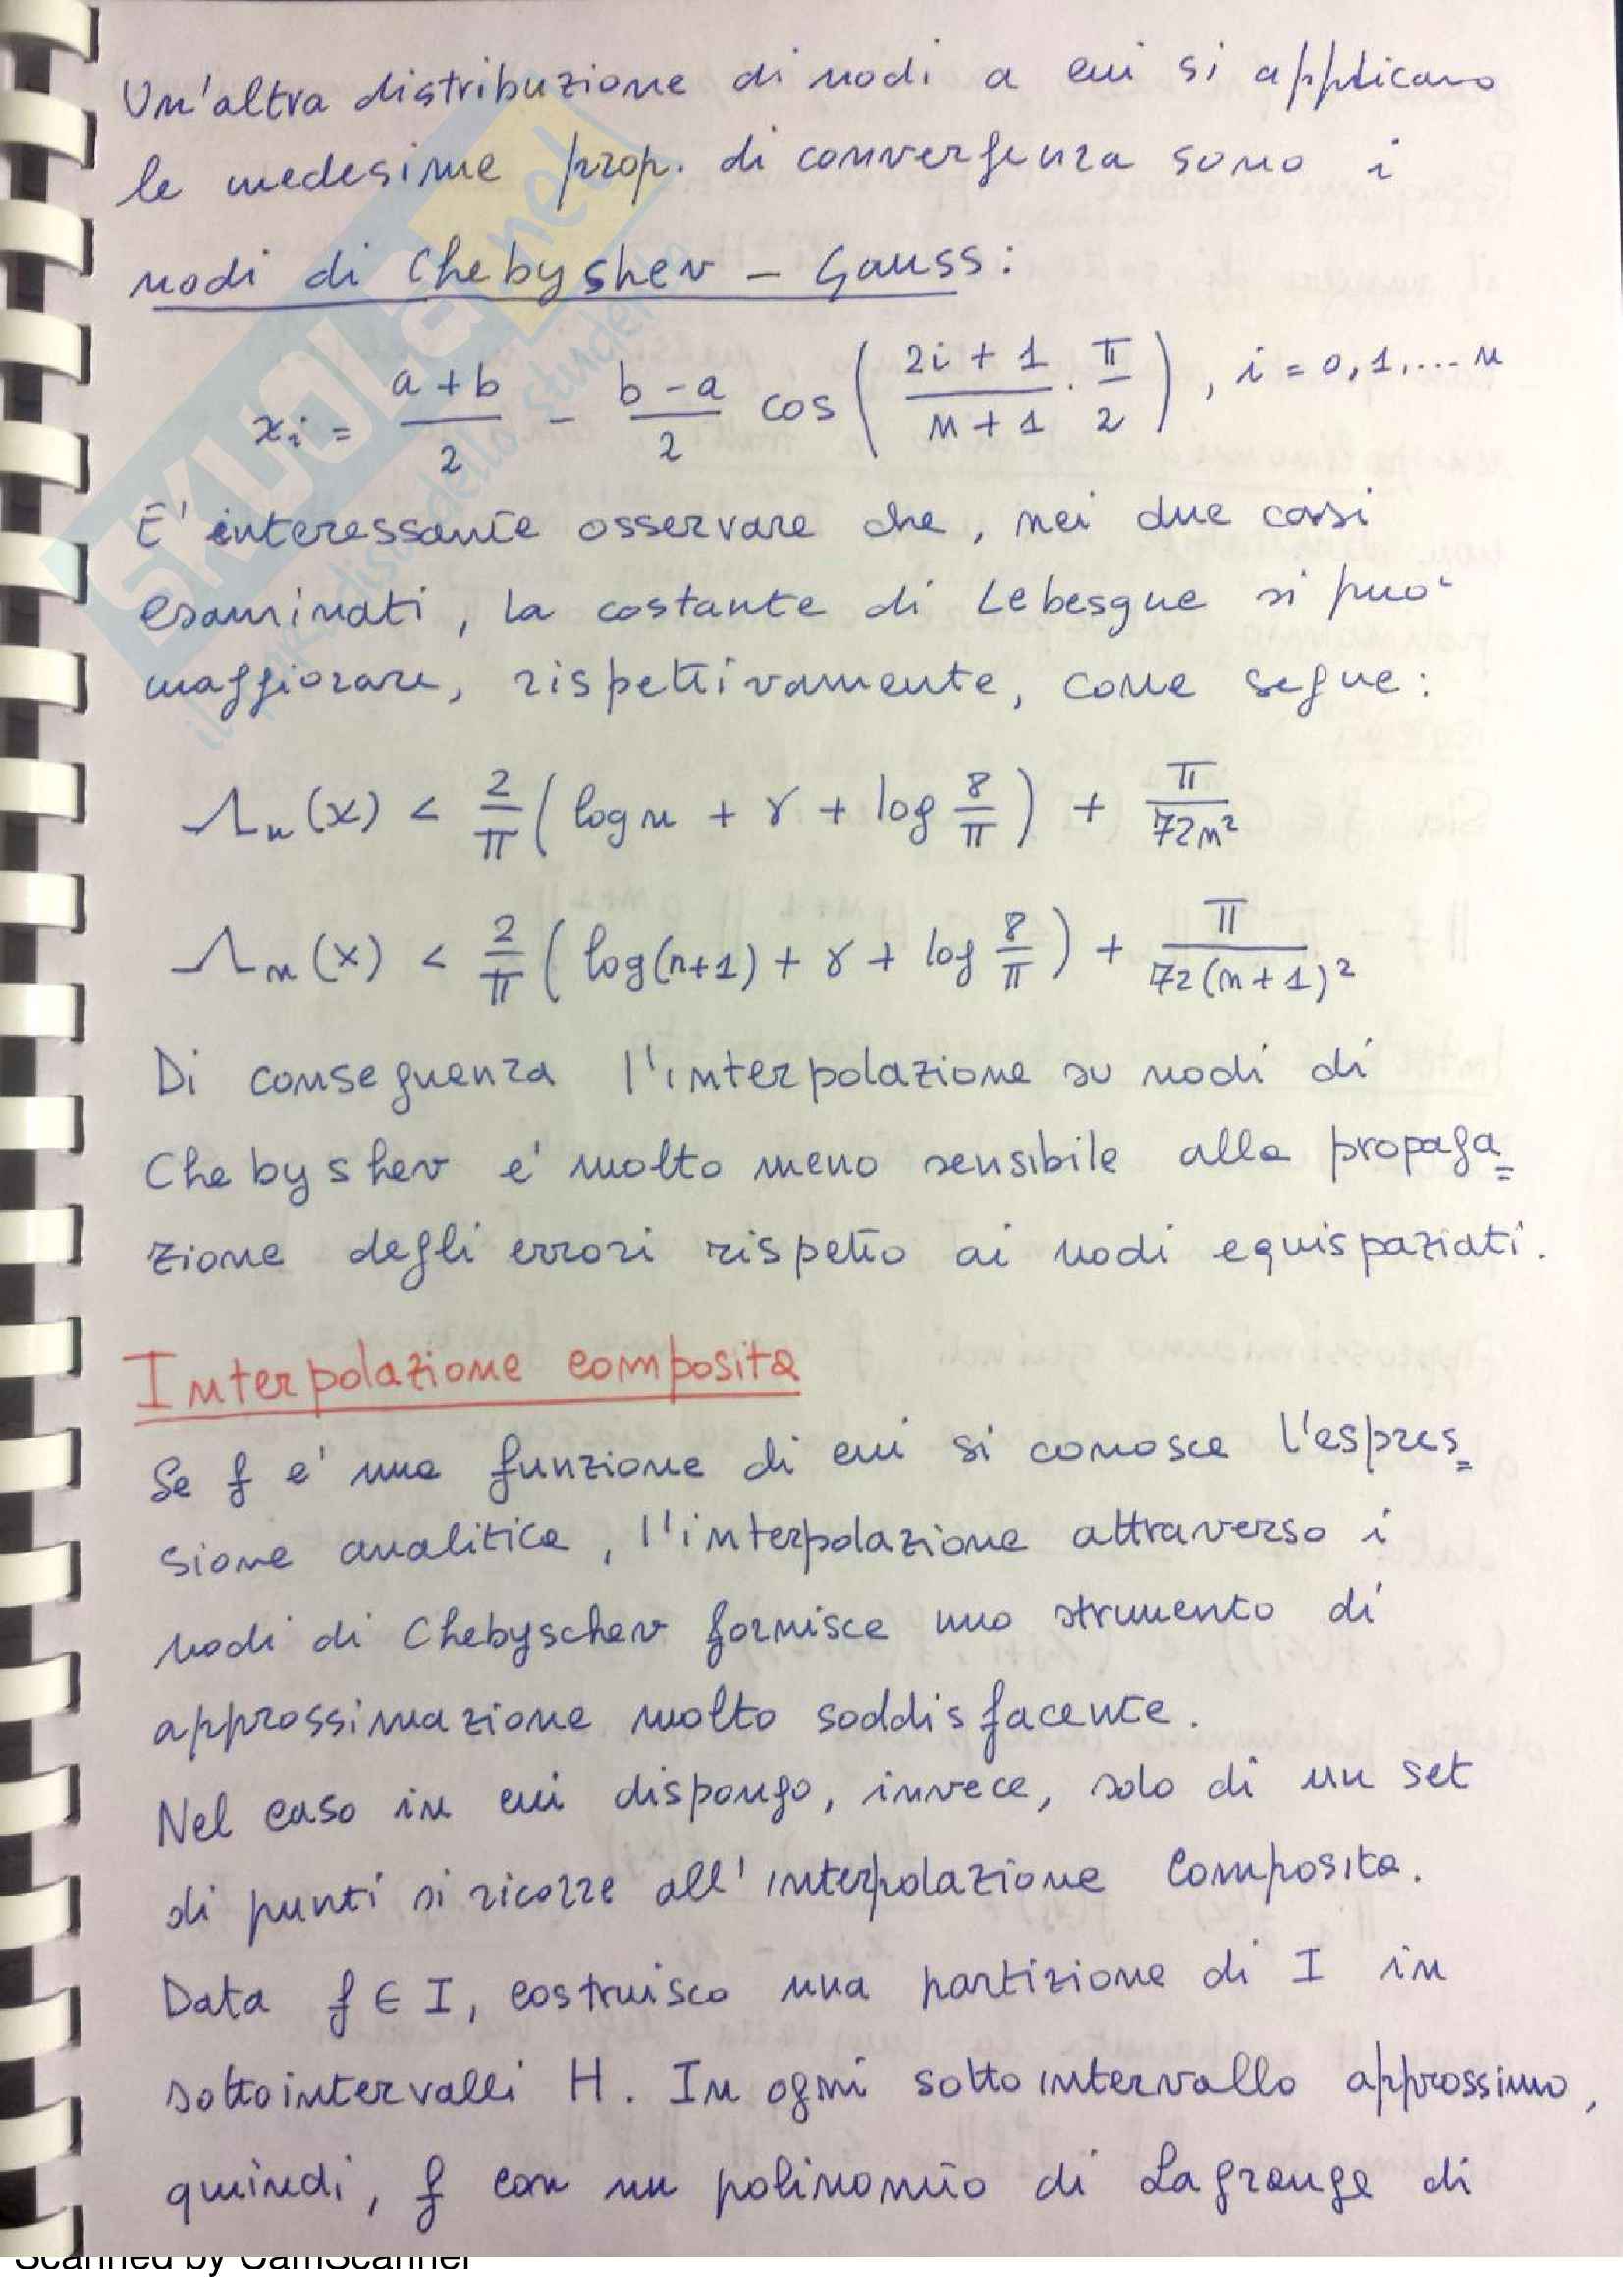 Un'altra distribuzione di nodi a cui si applicano
le medesime prop. di convergenza sono i
nodi di Chebyshev - Gauss:
xi = a+b/2 - b-a/2 cos( 2i+1/n+1 · π/2 ), i = 0,1,...n
E' interessante osservare che, nei due casi
esaminati, la costante di Lebesgue si puo'
maggiorare, rispettivamente, come segue:
Λn(x) < 2/π ( log n + γ + log 8/π ) + π/72n²
Λn(x) < 2/π ( log(n+1) + γ + log 8/π ) + π/72(n+1)²
Di conseguenza l'interpolazione su nodi di
Chebyshev e' molto meno sensibile alla propaga=
zione degli errori rispetto ai nodi equispaziati.
Interpolazione composita
Se f e' una funzione di cui si conosce l'espres=
sione analitica, l'interpolazione attraverso i
nodi di Chebyschev fornisce uno strumento di
approssimazione molto soddisfacente.
Nel caso in cui dispongo, invece, solo di un set
di punti si ricorre all'interpolazione composita.
Data f ∈ I, costruisco una partizione di I in
sottointervalli H. In ogni sottointervallo approssimo,
quindi, f con un polinomio di Lagrange di
SKUOLA.net
il paradiso dello studente
Scanned by CamScanner